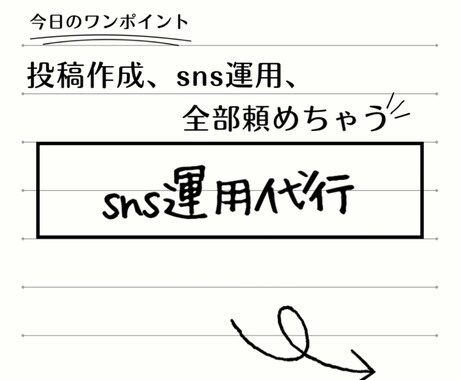 今日のワンポイント
投稿作成、sns運用、
全部頼めちゃう
sns運用代行